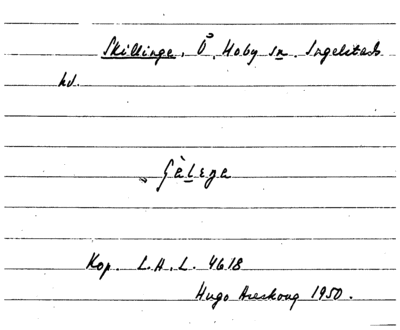 Skillinge, Ö. Hoby sn. Ingelstads
hd.
Gàlega
Kop. L.A.L. 4618
Hugo Areskoug 1950.